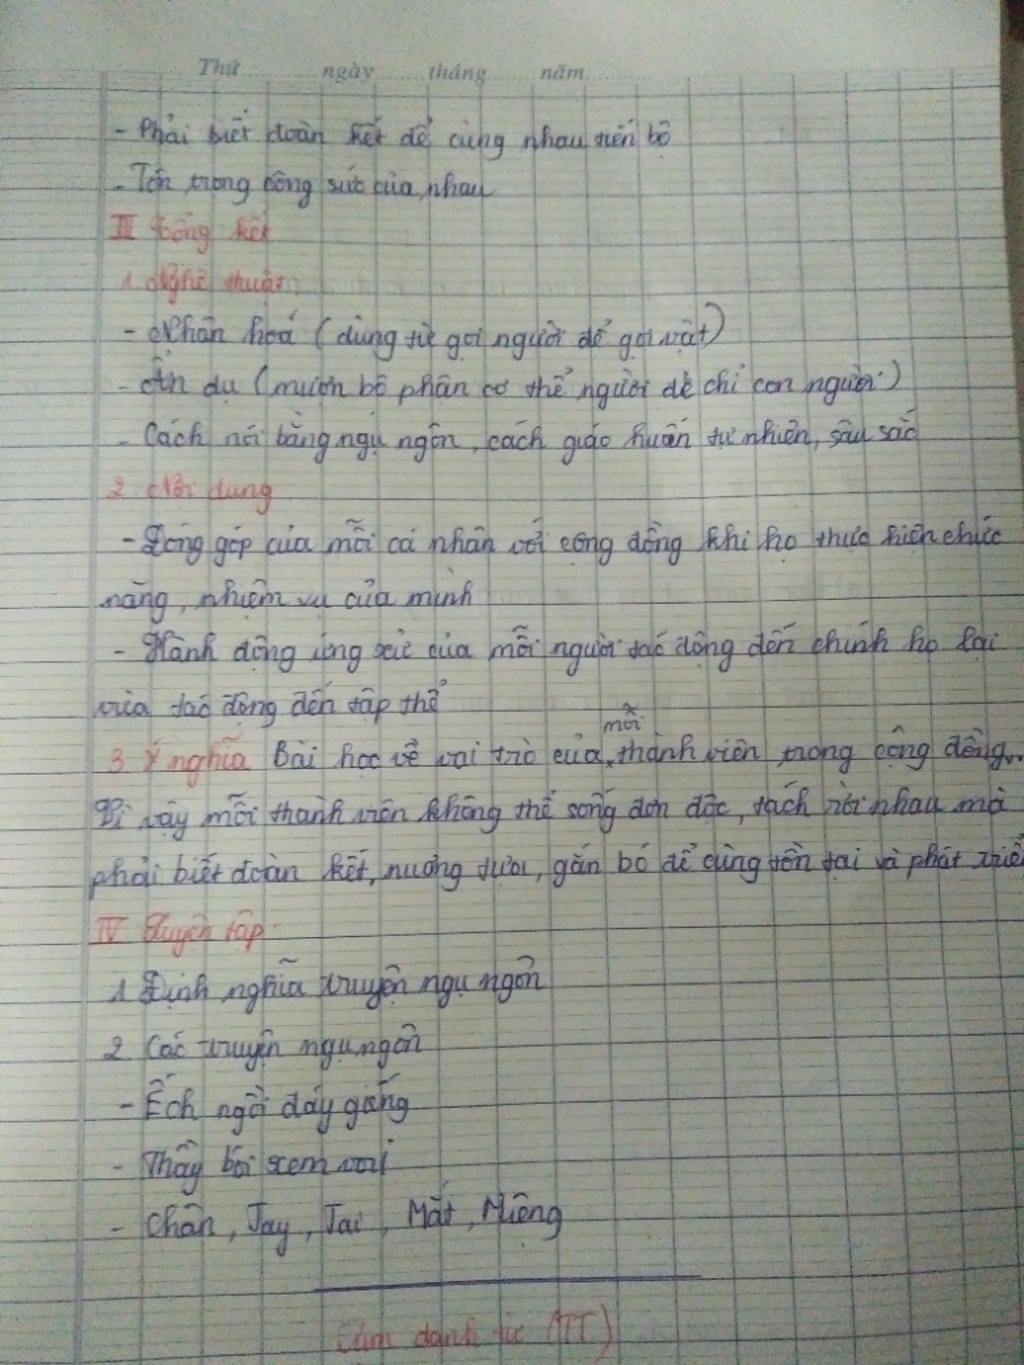 Thứ ngày tháng năm
- Phải biết đoàn kết để cùng nhau tiến bộ
- Tôn trọng công sức của nhau
III Tổng kết
1 Nghệ thuật:
- Nhân hoá (dùng từ gọi người để gọi vật)
- Ẩn dụ (mượn bộ phận cơ thể người để chỉ con người)
- Cách nói bằng ngụ ngôn, cách giáo huấn tự nhiên, sâu sắc
2 Nội dung
- Đóng góp của mỗi cá nhân với cộng đồng khi họ thực hiện chức
năng, nhiệm vụ của mình
- Hành động ứng xử của mỗi người tác động đến chính họ lại
vừa tác động đến tập thể
3 Ý nghĩa Bài học về vai trò của mỗi thành viên trong cộng đồng.
Vì vậy mỗi thành viên không thể sống đơn độc, tách rời nhau mà
phải biết đoàn kết, nương tựa, gắn bó để cùng tồn tại và phát triể
IV Luyện tập
1 Định nghĩa truyện ngụ ngôn
2 Các truyện ngụ ngôn
- Ếch ngồi đáy giếng
- Thầy bói xem voi
- Chân, Tay, Tai, Mắt, Miệng
Cụm danh từ (TT)